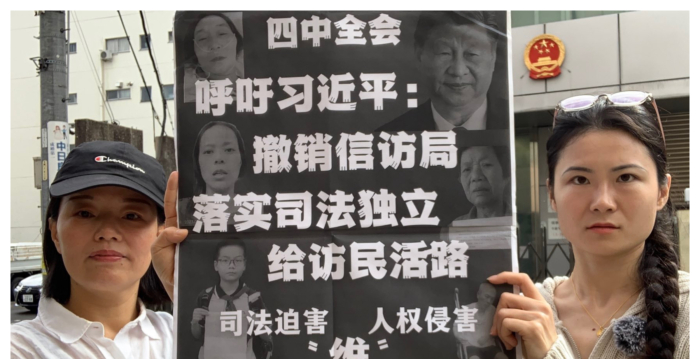 四中全会
呼吁习近平：
撤销信访局
落实司法独立
给访民活路
司法迫害 人权侵害
“维”
Champion
中日